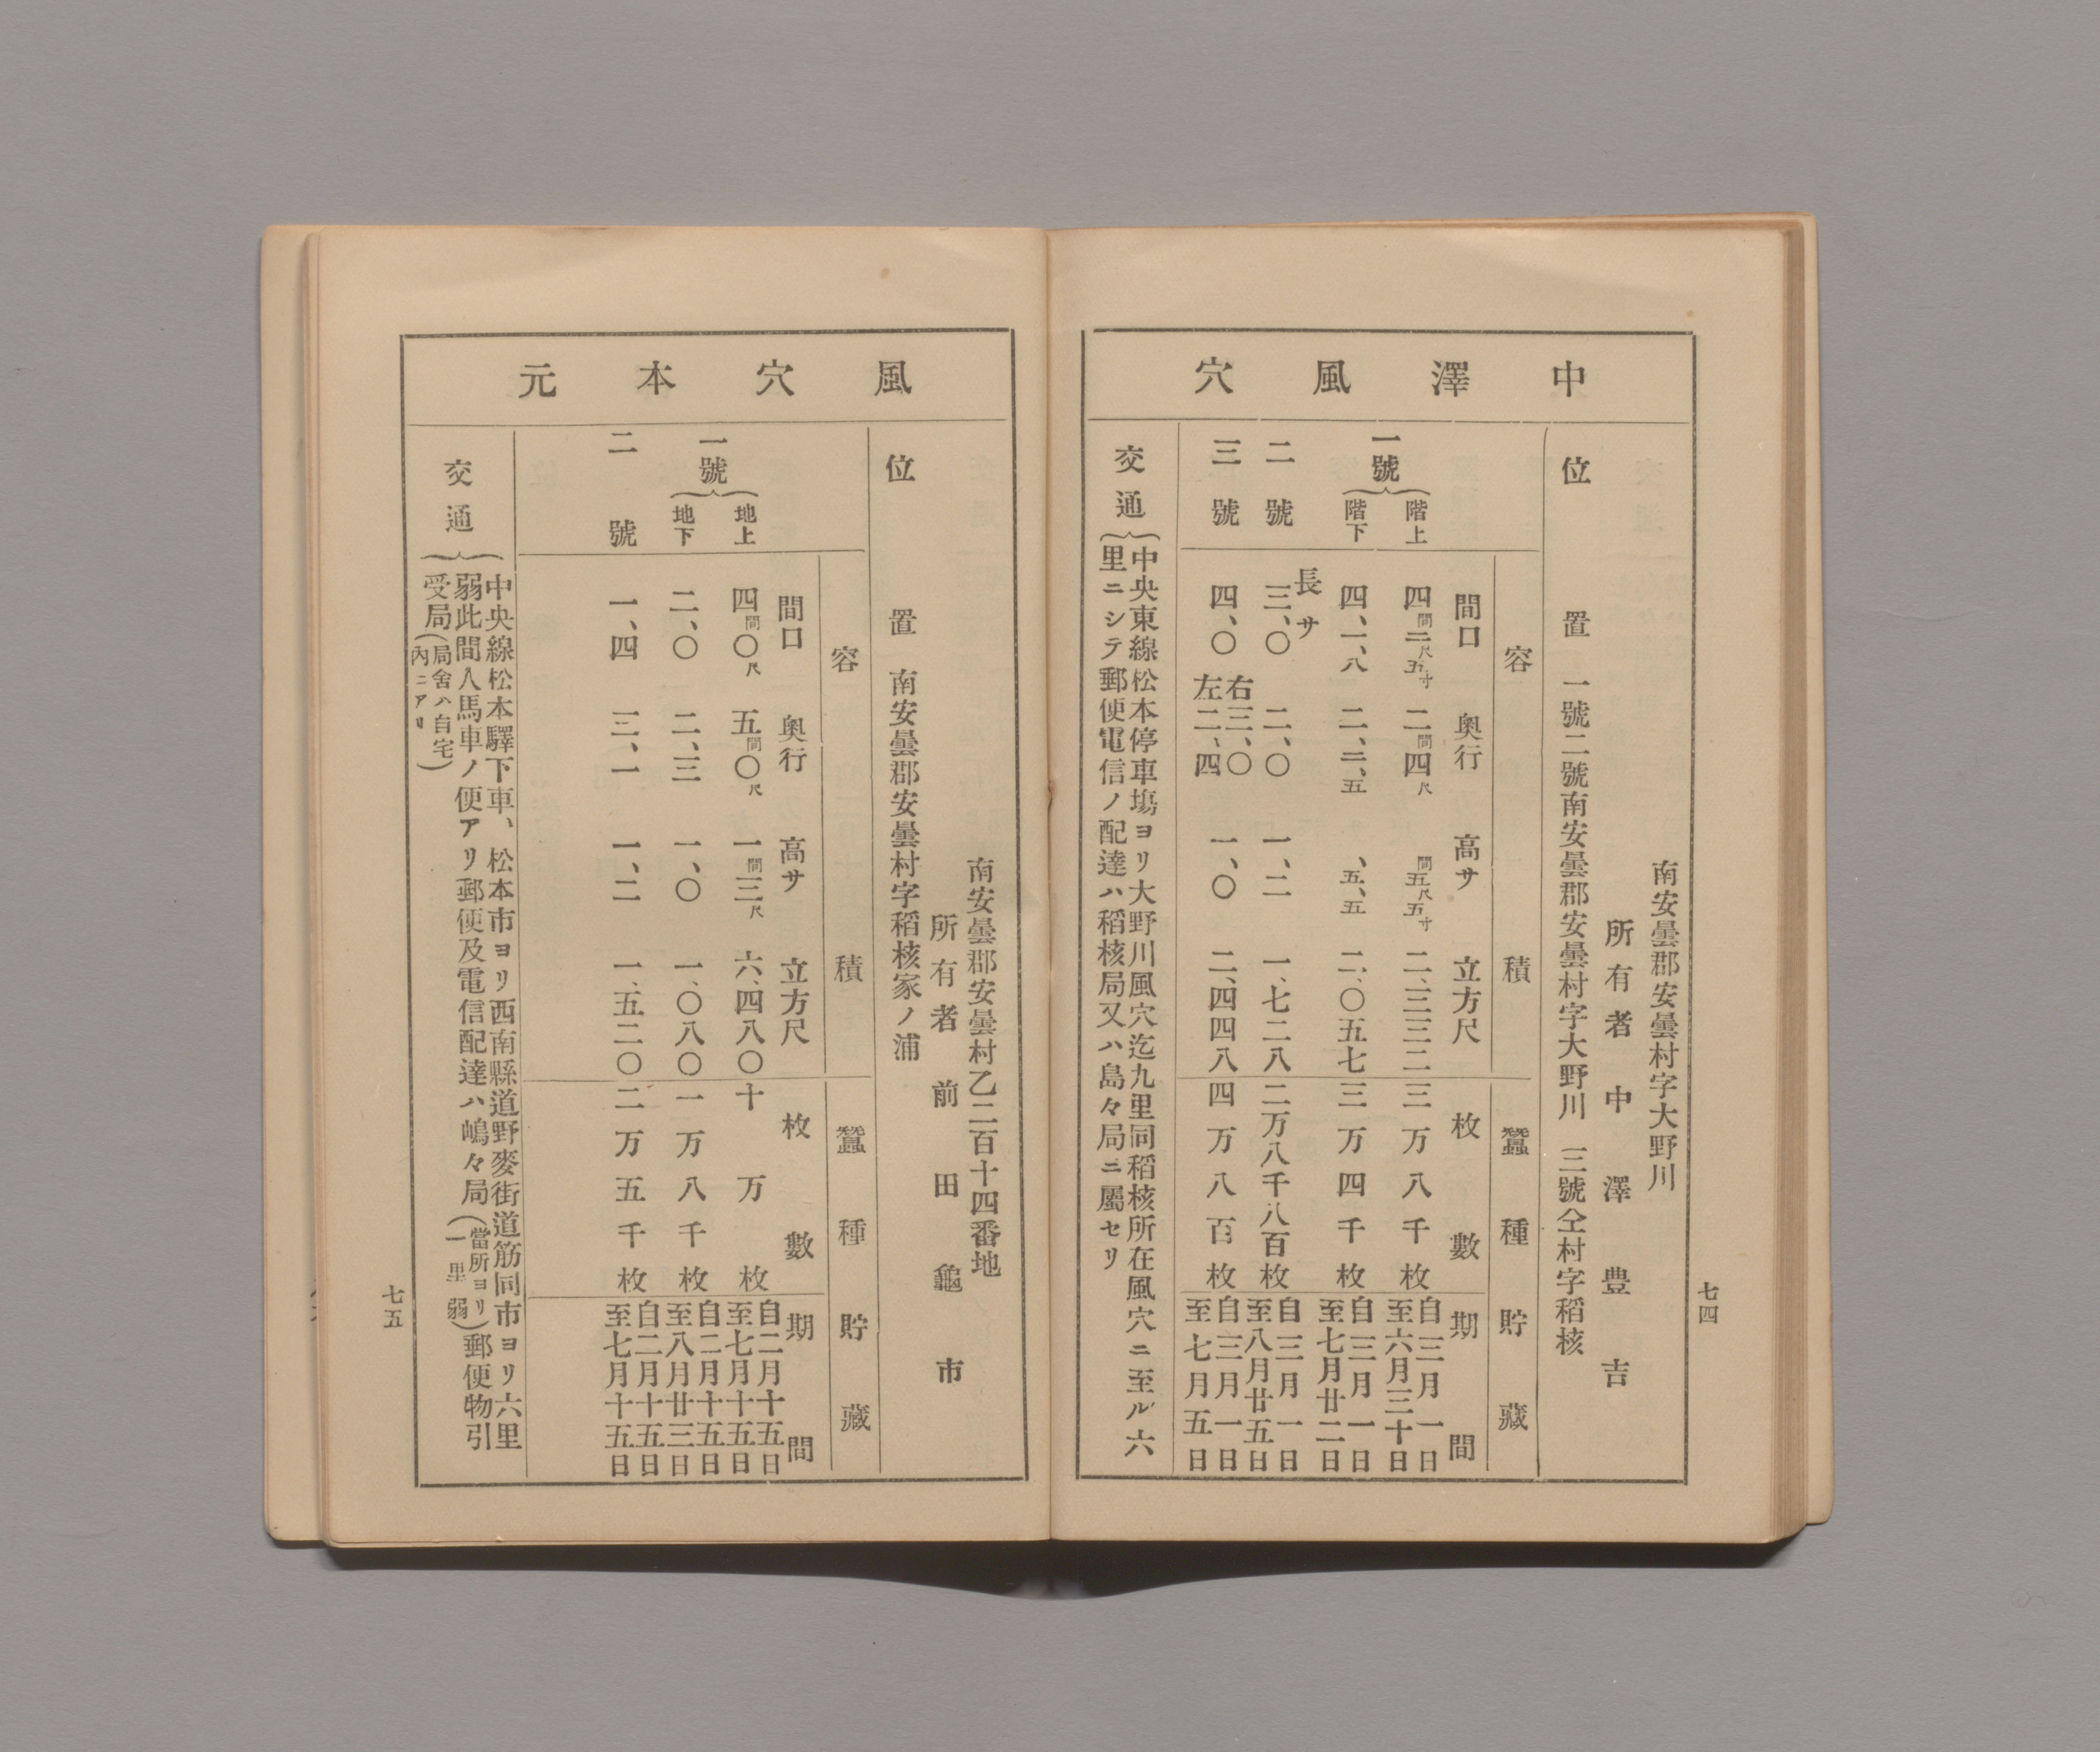 中澤風穴
南安曇郡安曇村字大野川
所有者 中澤豊吉
位置 一號二號南安曇郡安曇村字大野川 三號仝村字稻核
容積
蠶種貯藏
間口 奥行 高サ 立方尺 枚數 期間
一號
階上 四間二尺五寸 二間四尺 間五尺五寸 二、三三二 三万八千枚 自三月一日至六月三十日
階下 四、一、八 二、三、五 、五、五 二、〇五七 三万四千枚 自三月一日至七月廿二日
二號 長サ三、〇 二、〇 一、二 一、七二八 二万八千八百枚 自三月一日至八月廿五日
三號 四、〇 右三、〇 左二、四 一、〇 二、四四八 四万八百枚 自三月一日至七月五日
交通
中央東線松本停車塲ヨリ大野川風穴迄九里同稻核所在風穴ニ至ル六
里ニシテ郵便電信ノ配達ハ稻核局又ハ島々局ニ屬セリ
七四
風穴本元
南安曇郡安曇村乙二百十四番地
所有者 前田龜市
位置 南安曇郡安曇村字稻核家ノ浦
容積
蠶種貯藏
間口 奥行 高サ 立方尺 枚數 期間
一號
地上 四間〇尺 五間〇尺 一間三尺 六、四八〇 十万枚 自二月十五日至七月十五日
地下 二、〇 二、三 一、〇 一、〇八〇 一万八千枚 自二月十五日至八月廿三日
二號 一、四 三、一 一、二 一、五二〇 二万五千枚 自二月十五日至七月十五日
交通
中央線松本驛下車、松本市ヨリ西南縣道野麥街道筋同市ヨリ六里
弱此間人馬車ノ便アリ郵便及電信配達ハ嶋々局(當所ヨリ一里弱)郵便物引
受局(局舍ハ自宅內ニアリ)
七五